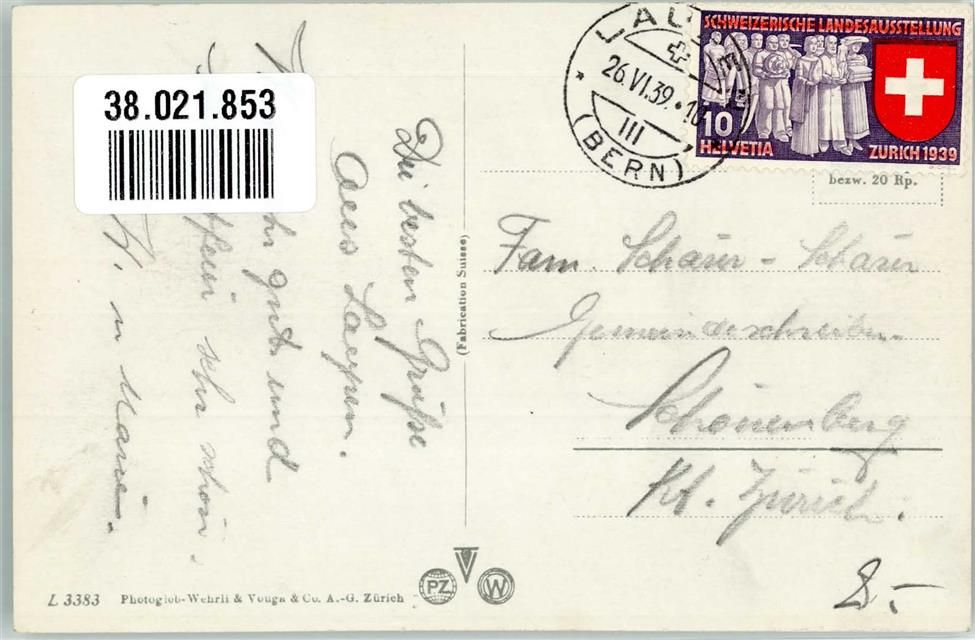 38.021.853
Die besten Grüsse
Aus Laupen.
gut und
sehr schön.
u Marie.
(Fabrication Suisse)
LAUPEN
26.VI.39.10
III
(BERN)
SCHWEIZERISCHE LANDESAUSSTELLUNG
10
HELVETIA
ZURICH 1939
bezw. 20 Rp.
Fam. Schärer - Schärer
Gemeindeschreiber
Schönenberg
Kt. Zürich.
L 3383 Photoglob-Wehrli & Vouga & Co. A.-G. Zürich
PZ
V
W